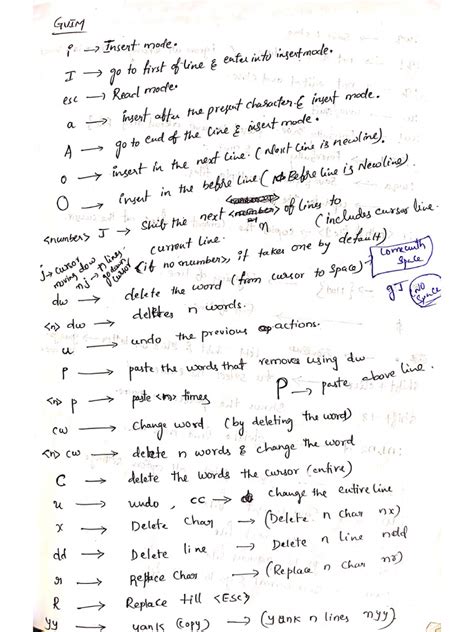 GVIM
i → Insert mode.
I → go to first of line & enter into insertmode.
esc → Read mode.
a → insert after the present character & insert mode.
A → go to end of the line & insert mode.
o → insert in the next line. (Next line is newline).
O → insert in the before line (Before line is Newline).
<number> J → Shift the next n of lines to
current line. (includes cursor line.
(if no number, it takes one by default)
j → cursor
moving down
nj → n lines
go down
cursor
dw → delete the word (from cursor to space) → with
space
gJ NO
space
<n> dw → deletes n words.
u → undo the previous actions.
p → paste the words that removes using dw
<n> p → paste <n> times P → paste above line.
cw → change word (by deleting the word)
<n> cw → delete n words & change the word
C → delete the words the cursor (entire)
u → undo, cc → change the entire line
x → Delete char → (Delete n char nx)
dd → Delete line → Delete n line ndd
r → Replace char → (Replace n char nr)
R → Replace till <Esc>
yy → yank (copy) → (yank n lines nyy)